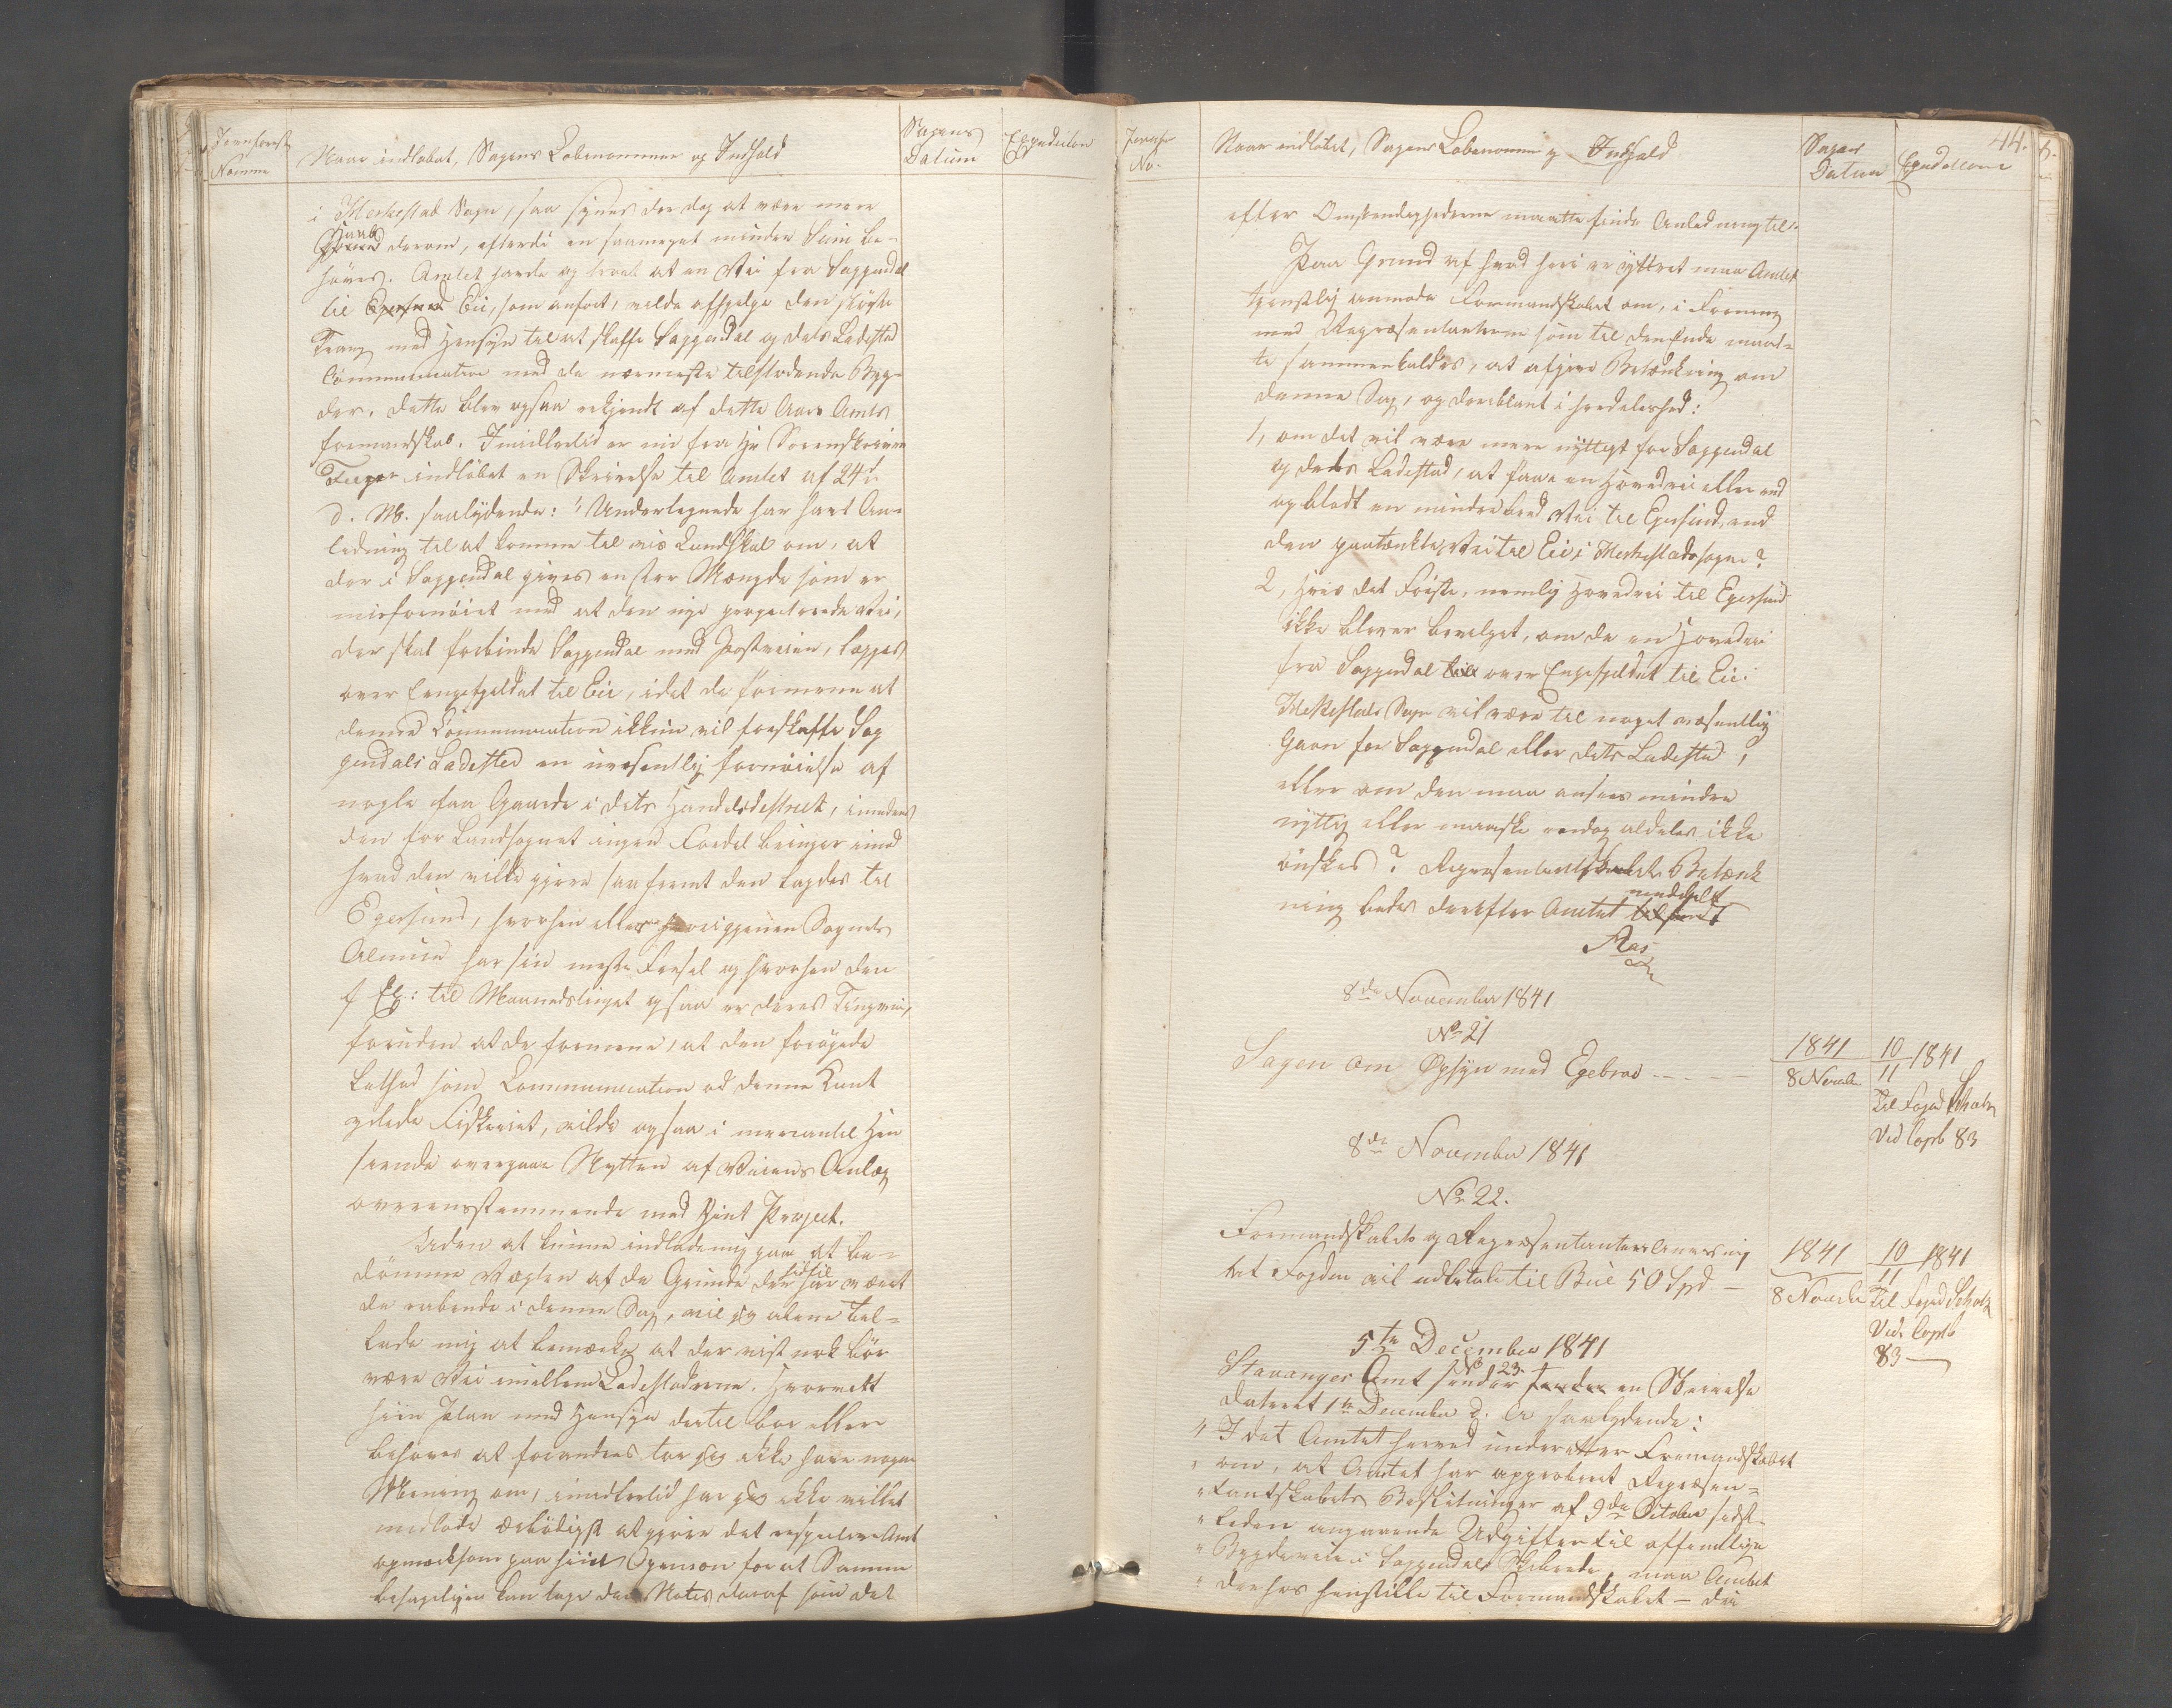 Nomer
Naar indløbet, Sagens Løbenommer og Indhold
Sagens
Datum
Expedition
i Heskestad Sogn, saa synes der dog at være mere
Haab derom, efterdi en saameget mindre Sum be-
høves. Amtet havde og troet at en Vei fra Soggendal
til Egersund Eie, som anført, vilde afhjelpe den største
Trang med Hensyn til at skaffe Soggendal og dets Ladested
Communication med de nærmeste tilstødende Byg-
der. Dette blev ogsaa erkjendt af dette Aars Amts
formandskab. Imidlertid er nu fra Hr Sorenskriver
indløbet en Skrivelse til Amtet af 24d
d. M. saalydende: "Undertegnede har havt An-
ledning til at komme til vis Kundskab om, at
der i Soggendal gives en stor Mængde som er
misfornøiet med at den nye projecterede Vei,
der skal forbinde Soggendal med Postveien, lægges
over Eengefjeldet til Eie, idet de formene at
denne Communication ikkun vil forskaffe Sog
gendals Ladested en uvæsentlig fornøielse af
nogle faa Gaarde i dets Handelsdistrict, imedens
den for Landsognet ingen Fordel bringer imod
hvad den vilde gjøre saafremt den lagdes til
Egersund, hvorhen ellers Sognets
Almue har sin meste Færsel og hvorhen den
f Ex: til Maanedstinget ogsaa er deres Tingvei,
foruden at de formene, at den forøgede
Lethed som Communication ad denne Kant
Fiskeriet, vilde ogsaa i mercantil Hen
seende overgaae Nytten af Veiens Anlæg
overensstemmende med hiint Project.
Uden at kunne indlade mig paa at be-
dømme Vægten af de Grunde der hidtil har været
de raadende i denne Sag, vil jeg alene til-
lade mig at bemærke at der vist nok bør
være Vei imellem Ladestæderne. Hvorvidt
hiin Plan med Hensyn dertil bør eller
behøves at forandres tør jeg ikke have nogen
Mening om, imidlertid har jeg ikke villet
undlade ærbødigst at gjøre det respective Amt
opmærksom paa hiin Openion for at Samme
behageligen kan tage den Notits deraf som det
Journal
No.
Naar indløbet, Sagens Løbenomer og Indhold
Sagens
Datum
Expeditione
44.
efter Omstændighederne maatte finde Anledning til."
Paa Grund af hvad heri er yttret maa Amtet
tjenstlig anmode Formandskabet om, i Forening
med Repræsentanterne som til den Ende maat-
te sammenkaldes, at afgive Betænkning om
denne Sag, og deriblant i særdeleshed:
1, om det vil være mere nyttigt for Soggendal
og dets Ladested, at faae en Hovedvei eller end
og blodt en mindre bred Vei til Egersund, end
den paatænkte Vei til Eie i Heskestads sogn?
2, Hvis det Første, nemlig Hovedvei til Egersund
ikke bliver bevilget, om da en Hovedvei
fra Soggendal til over Engefjeldet til Eie i
Heskestads Sogn vil være til noget væsentlig
Gavn for Soggendal eller dets Ladested,
eller om den maa ansees mindre
nyttig eller maaske endog aldeles ikke
ønskes? Representantskabets Betænk
ning bedes derefter Amtet tilsendt meddeelt
Aas
8de November 1841
No 21
Sagen om Opsyn med Egebrod - - -
1841
8 Novemb
10/11 1841
Til Foged Scholtz
Vid Copb 83
8de November 1841
No 22.
Formandskabets og Representanternes
at Fogden vil udbetale til Bue 50 Spd. -
1841
8 Novembr
10/11 1841
Til Foged Scholtz
Vide Copb
83
5te December 1841
No 23.
Stavanger Amt sender sender en Skrivelse
dateret 1te December d. A saalydende:
" I det Amtet herved underetter Formandskabet
" om, at Amtet har approberet Repræsen-
" tantskabets Beslutninger af 9de October sidst-
" leden angaaende Udgifter til offentlige
" Bygdeveie i Soggendals Skibrede, maa Amtet
" derhos henstille til Formandskabet - der